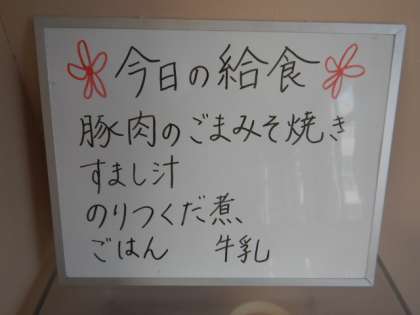 今日の給食
豚肉のごまみそ焼き
すまし汁
のりつくだ煮
ごはん 牛乳